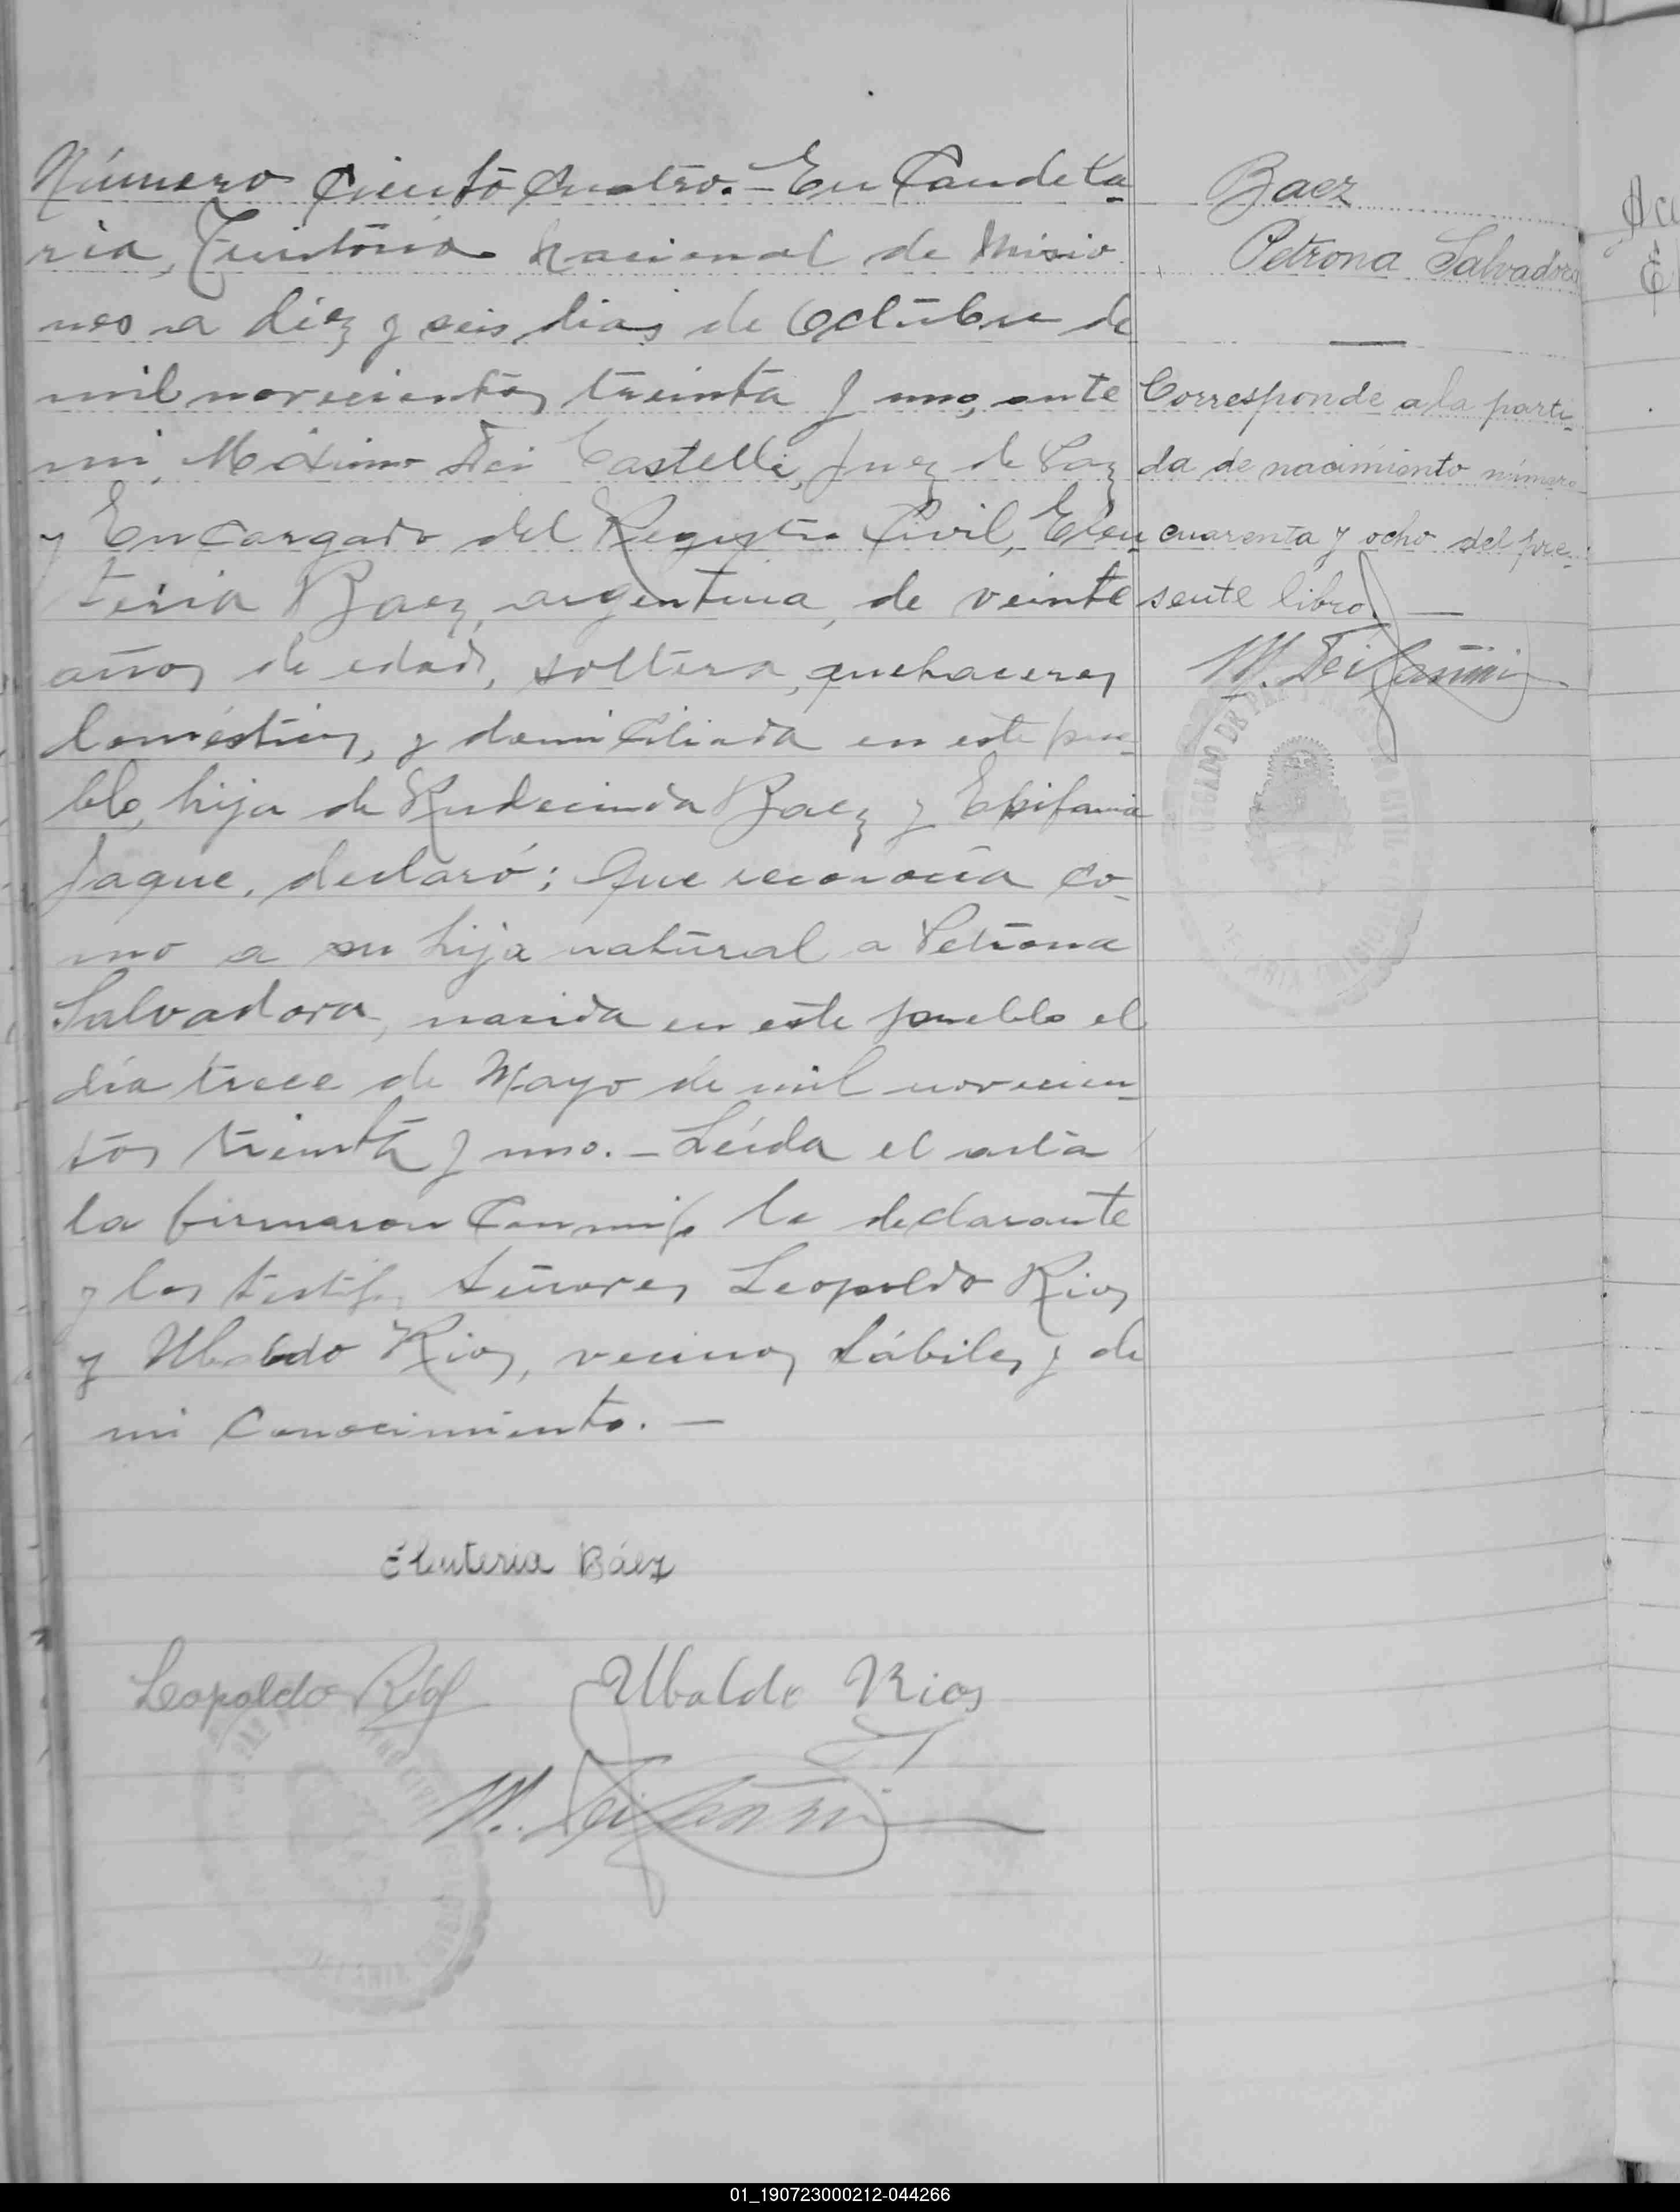 Número Ciento Cuatro. - En Candela-
ria, Territorio Nacional de Misio
nes a diez y seis dias de Octubre de
mil novecientos treinta y uno, ante
mi, Máximo Dei Castelli, Juez de Paz
y Encargado del Registro Civil, Eleu
teria Baez, argentina, de veinte
años de edad, soltera, quehaceres
domésticos, y domiciliada en este pue-
blo, hija de Rudecinda Baez y Epifania
Jaque, declaró: Que reconocía co-
mo a su hija natural a Petrona
Salvadora, nacida en este pueblo el
día trece de Mayo de mil novecien-
tos treinta y uno. - Leída el acta
la firmaron conmigo la declarante
y los testigos señores Leopoldo Rios
y Ubaldo Rios, vecinos hábiles y de
mi conocimiento. -
Eleuteria Báez
Leopoldo Rios Ubaldo Rios
Baez
Petrona Salvadora
Corresponde a la parti-
da de nacimiento número
cuarenta y ocho del pre-
sente libro. -
01_190723000212-044266